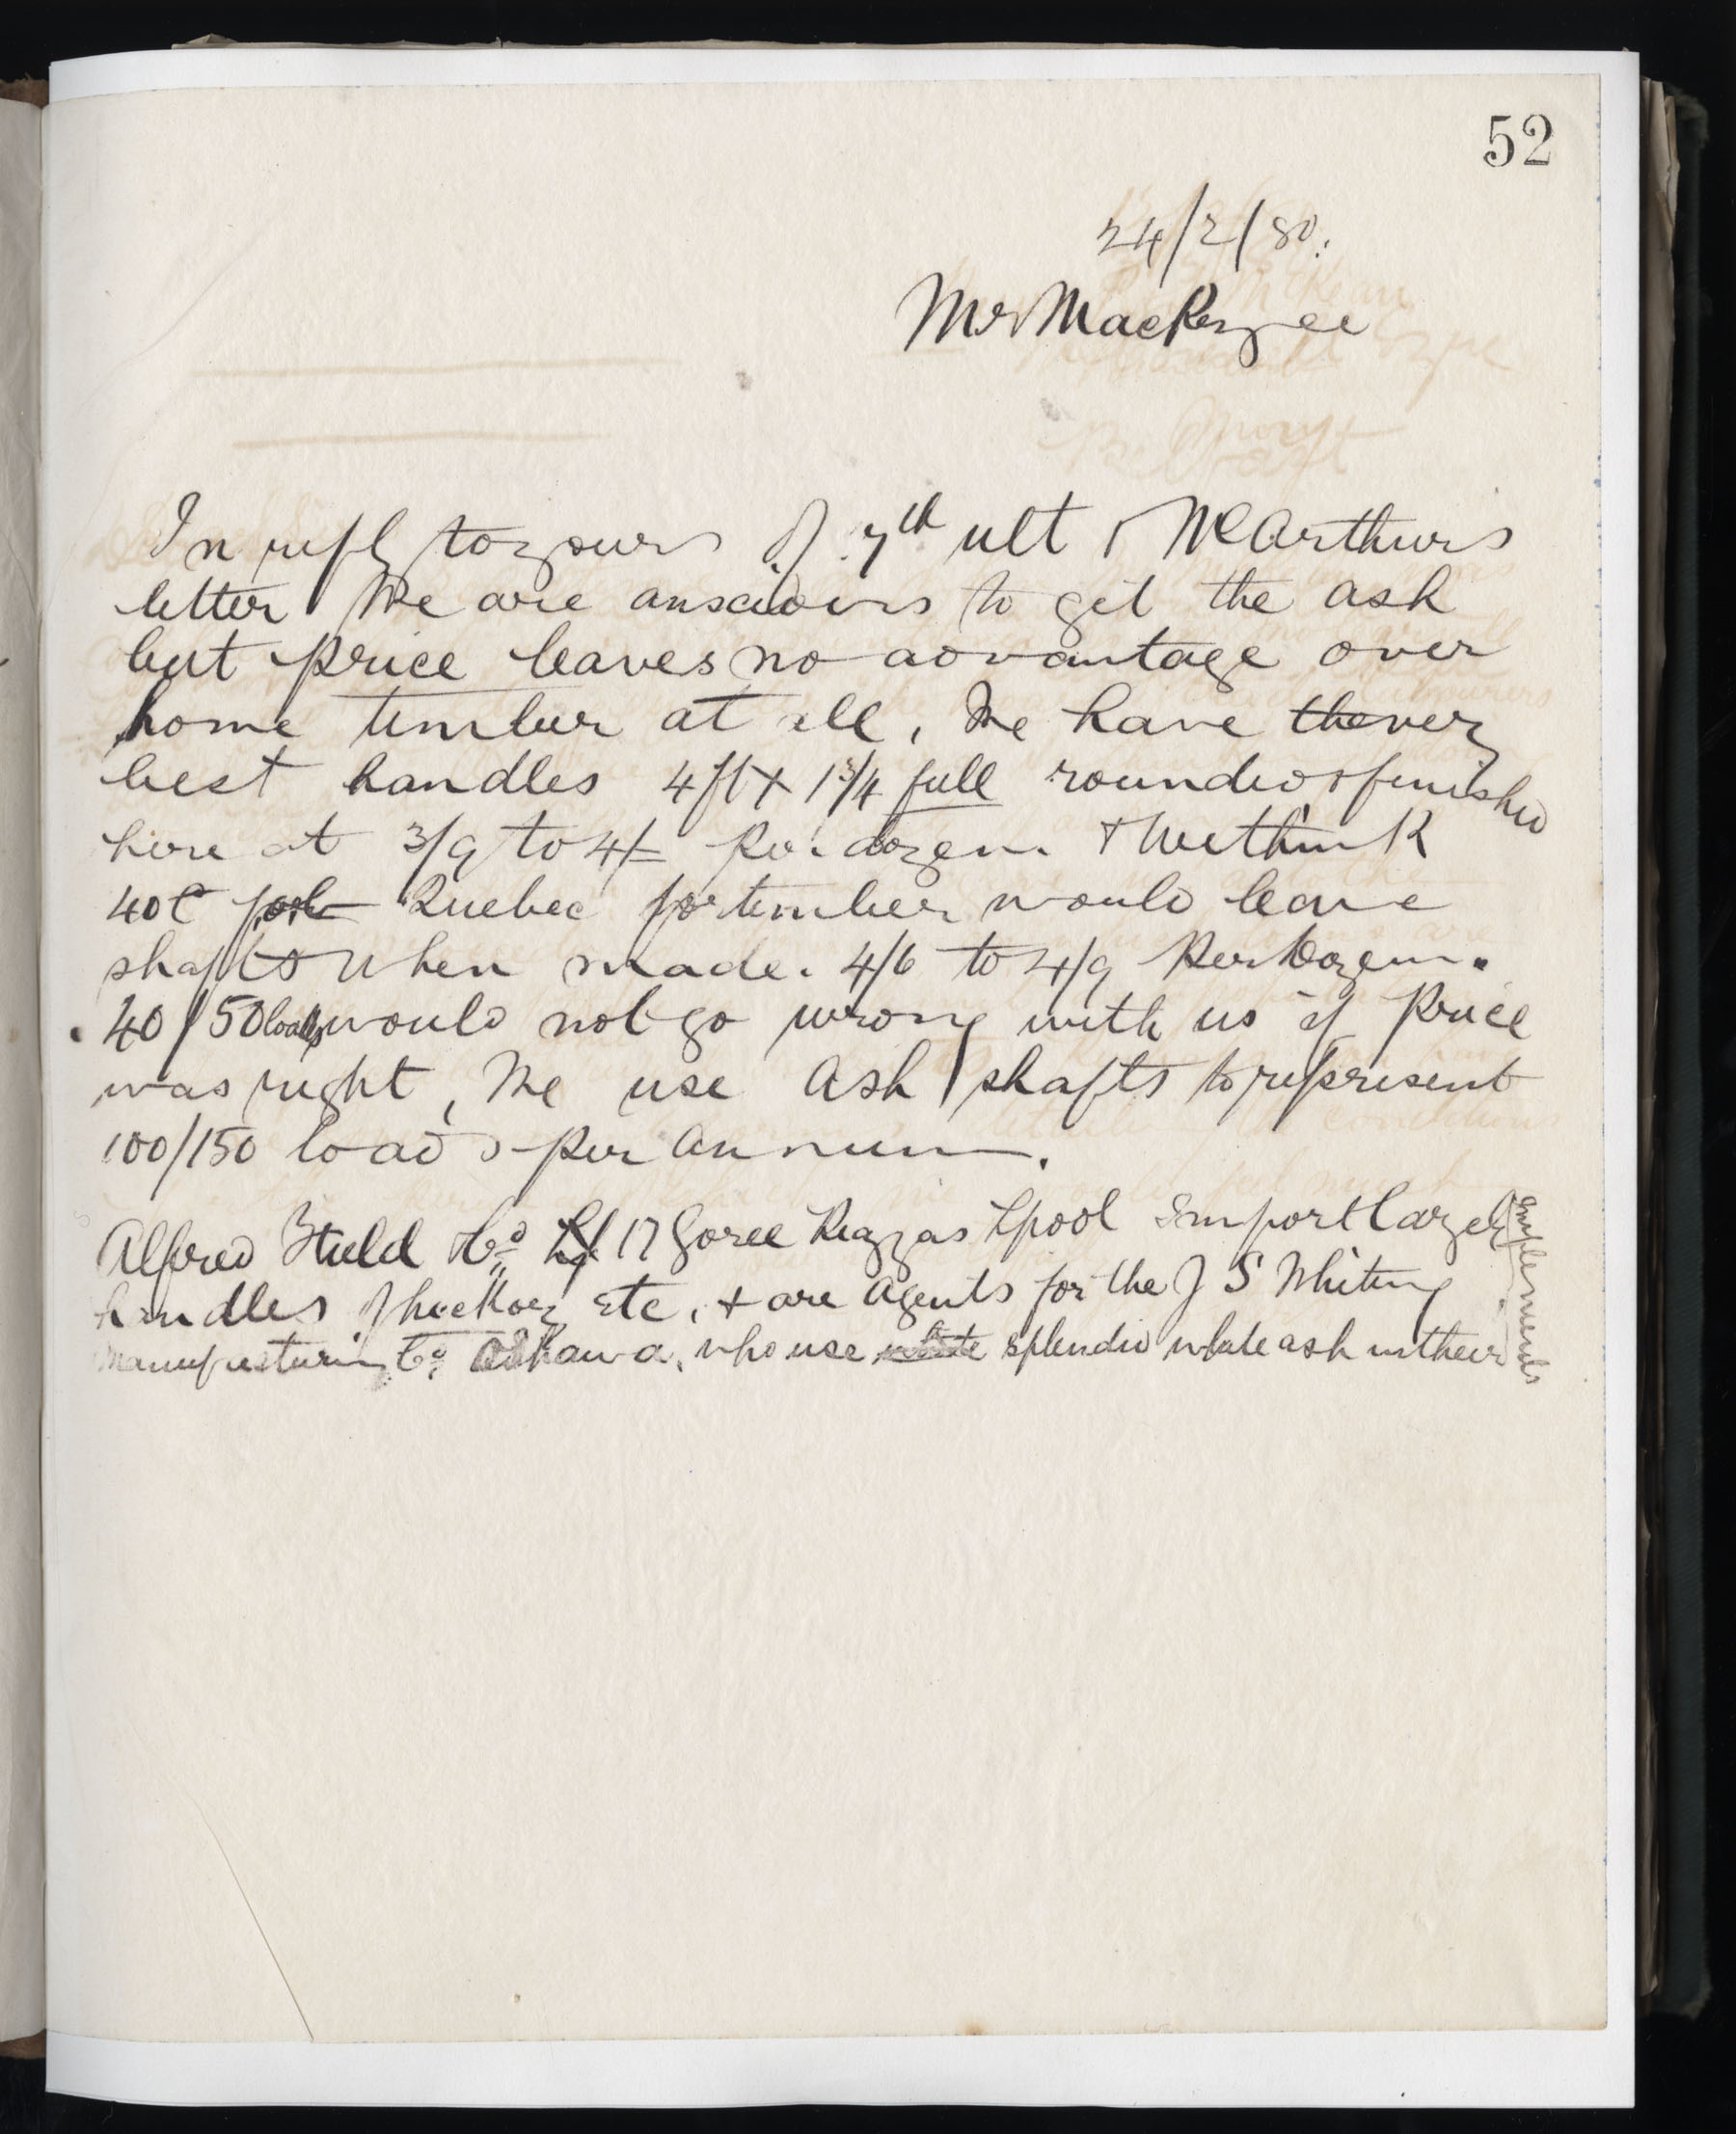 52
24/2/80.
Mr MacKenzie
In reply to yours of 7th ult & McArthurs
letter We are anxious to get the ash
but price leaves no advantage over
home timber at all, We have the very
best handles 4ft x 1 3/4 full rounded & finished
here at 3/9 to 4/= per dozen & We think
40c Quebec for timber would leave
shafts when made. 4/6 to 4/9 Per Dozen.
40/50 loads would not go wrong with us if Price
was right, We use Ash shafts to represent
100/150 loads per annum.
Alfred Field & Co 17 Goree Piazzas Lpool Import largely
handles of hickory etc, & are Agents for the J S Whiting
Manufacturing Co. Oshawa, who use white splendid white ash in their
implements